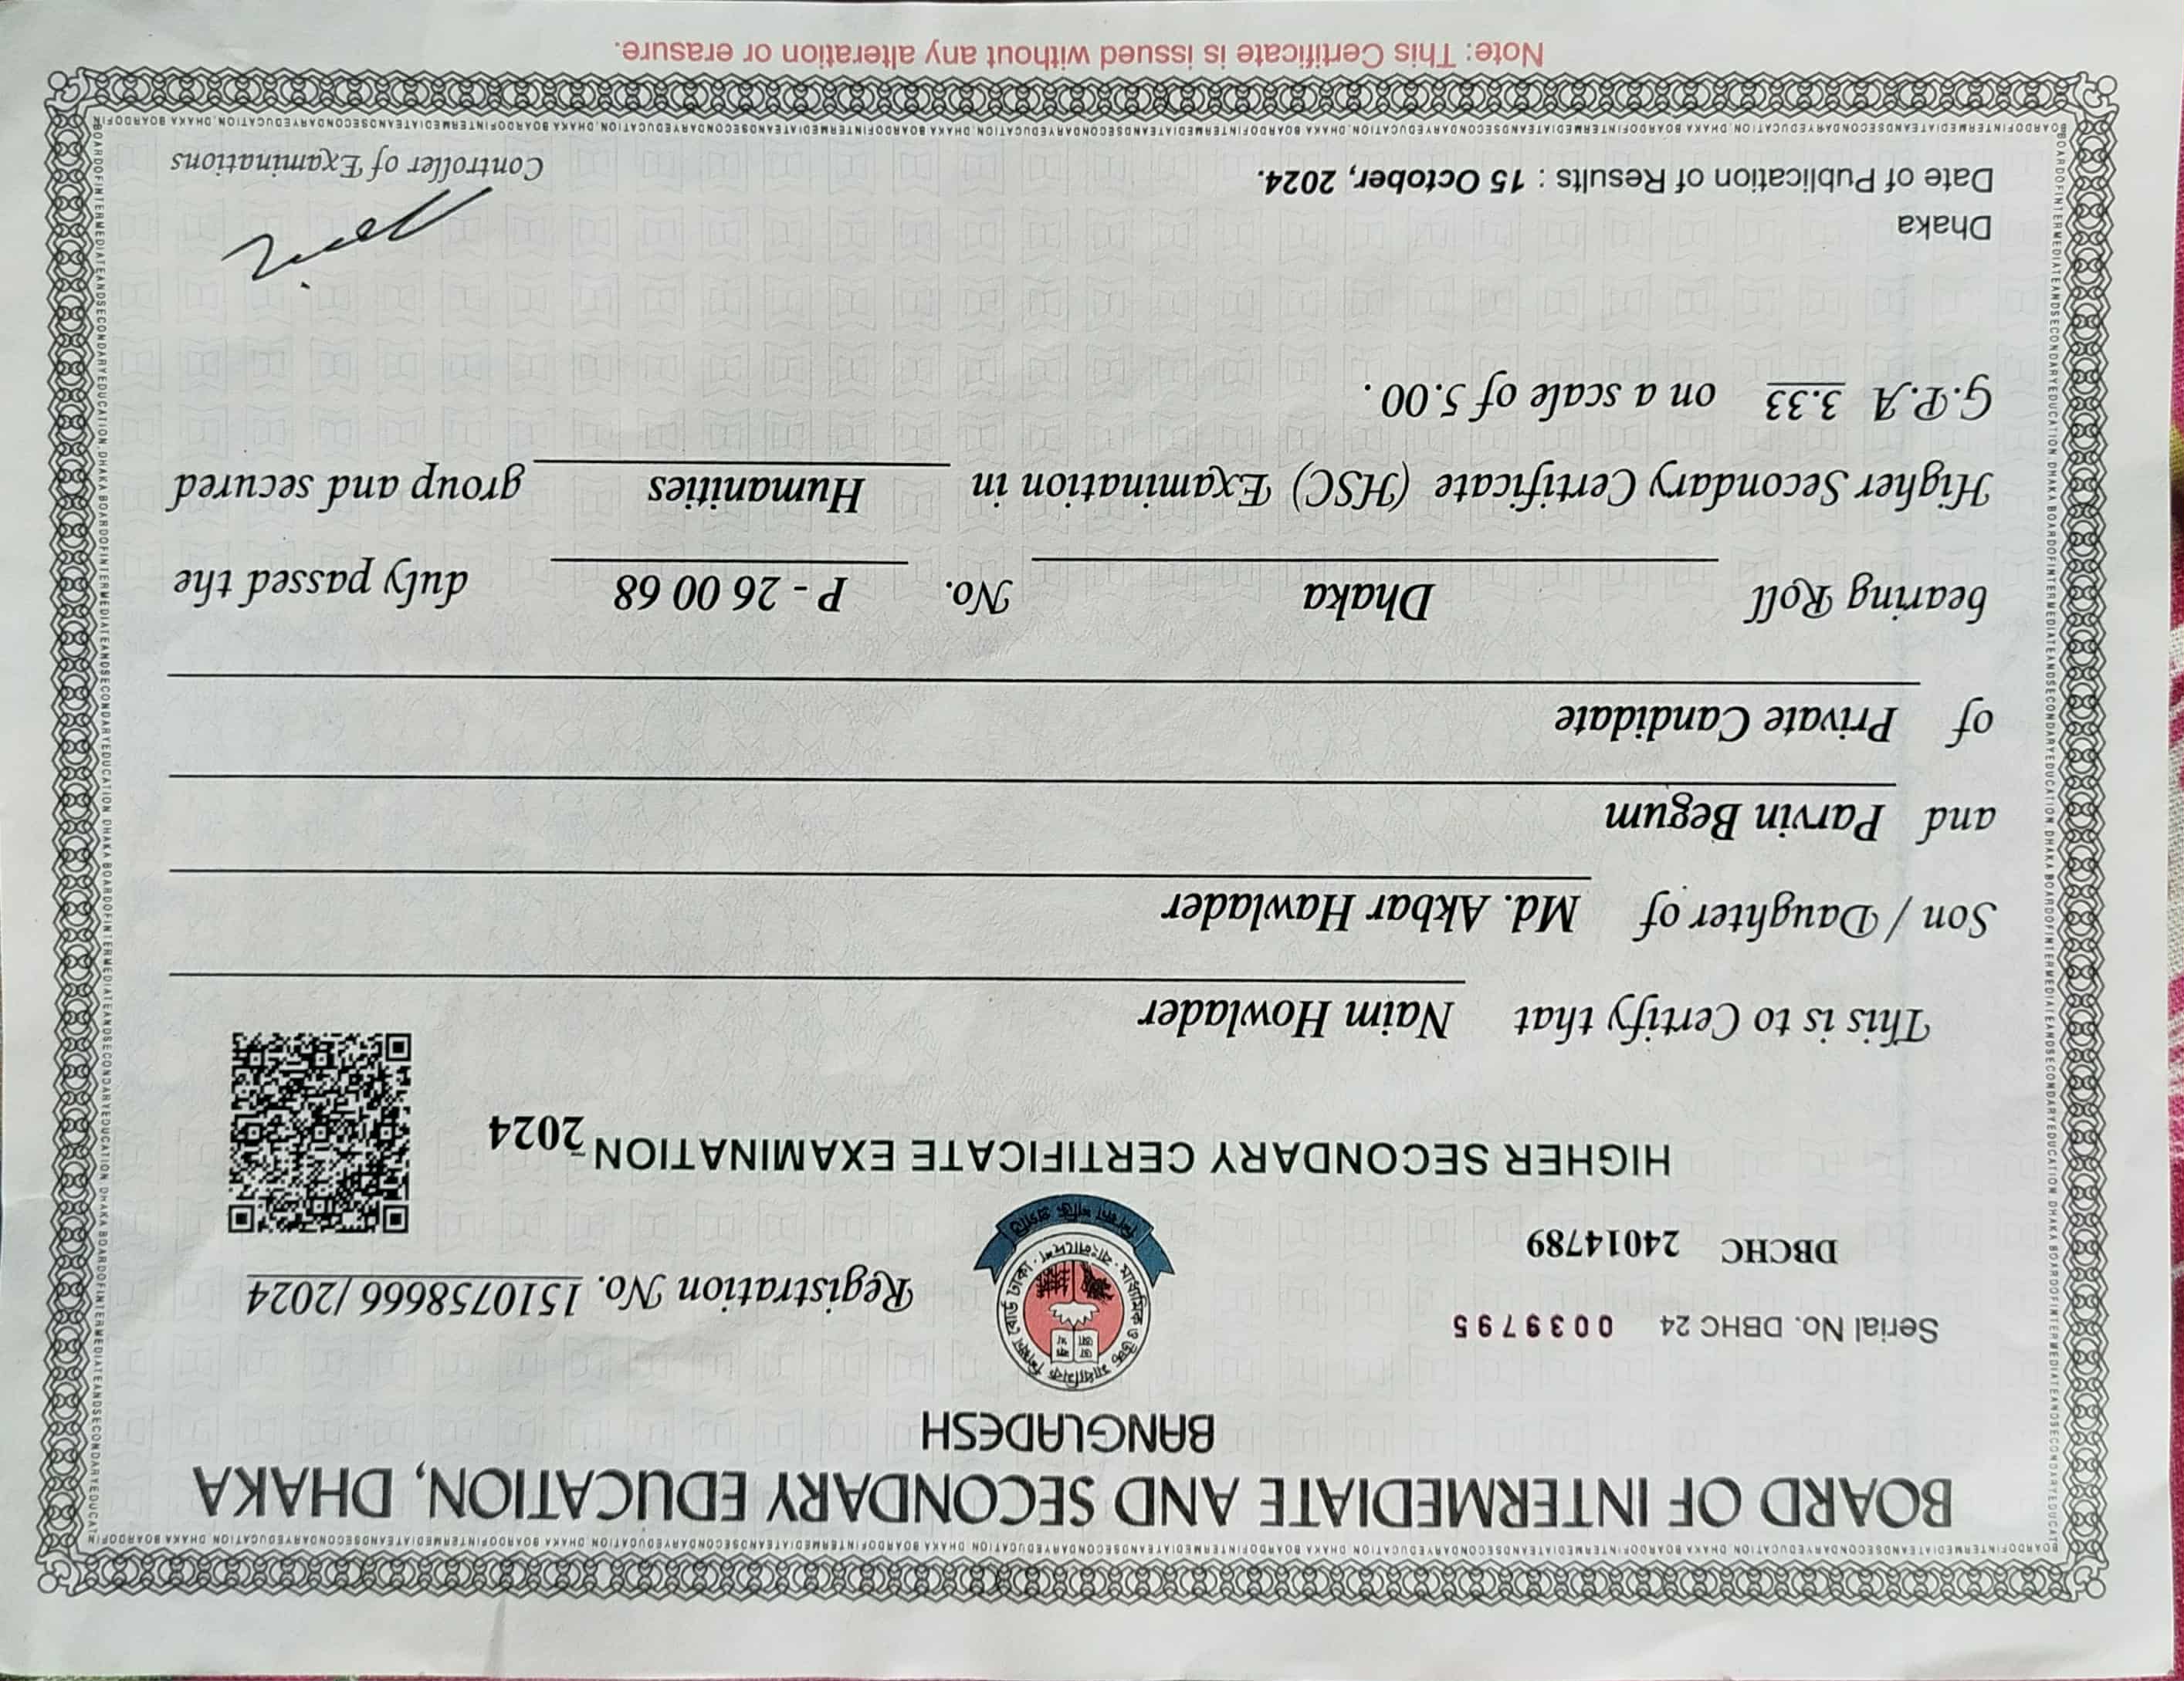 BOARD OF INTERMEDIATE AND SECONDARY EDUCATION, DHAKA
BANGLADESH
Serial No. DBHC 24 0039795
DBCHC 24014789
Registration No. 1510758666 / 2024
মাধ্যমিক ও উচ্চ মাধ্যমিক শিক্ষা বোর্ড ঢাকা · বাংলাদেশ ·
HIGHER SECONDARY CERTIFICATE EXAMINATION - 2024
This is to Certify that Naim Howlader
Son / Daughter of Md. Akbar Hawlader
and Parvin Begum
of Private Candidate
bearing Roll Dhaka No. P - 26 00 68 duly passed the
Higher Secondary Certificate (HSC) Examination in Humanities group and secured
G.P.A 3.33 on a scale of 5.00 .
Dhaka
Date of Publication of Results : 15 October, 2024.
Controller of Examinations
Note: This Certificate is issued without any alteration or erasure.